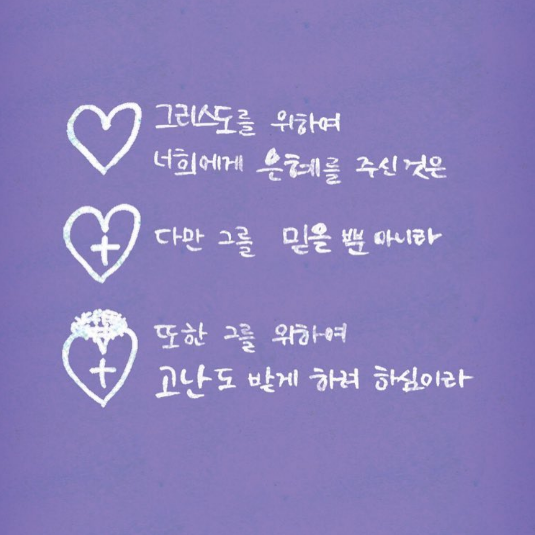 그리스도를 위하여
너희에게 은혜를 주신 것은
다만 그를 믿을 뿐 아니라
또한 그를 위하여
고난도 받게 하려 하심이라